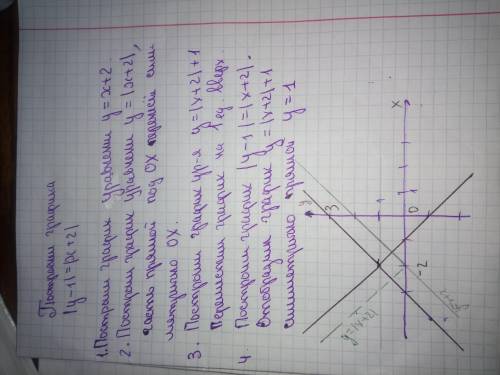 Построение графика
|y-1|=|x+2|
1. Построим график уравнения y=x+2
2. Построим график уравнения y=|x+2|,
часть прямой под OX перенесём сим-
метрично OX.
3. Построим график ур-я y=|x+2|+1
Переместим график на 1 ед. вверх
4. Построим график |y-1|=|x+2|.
Отобразим график y=|x+2|+1
симметрично прямой y=1
y
3
1
0
1
x
-2
y=|x+2|
y=x+2